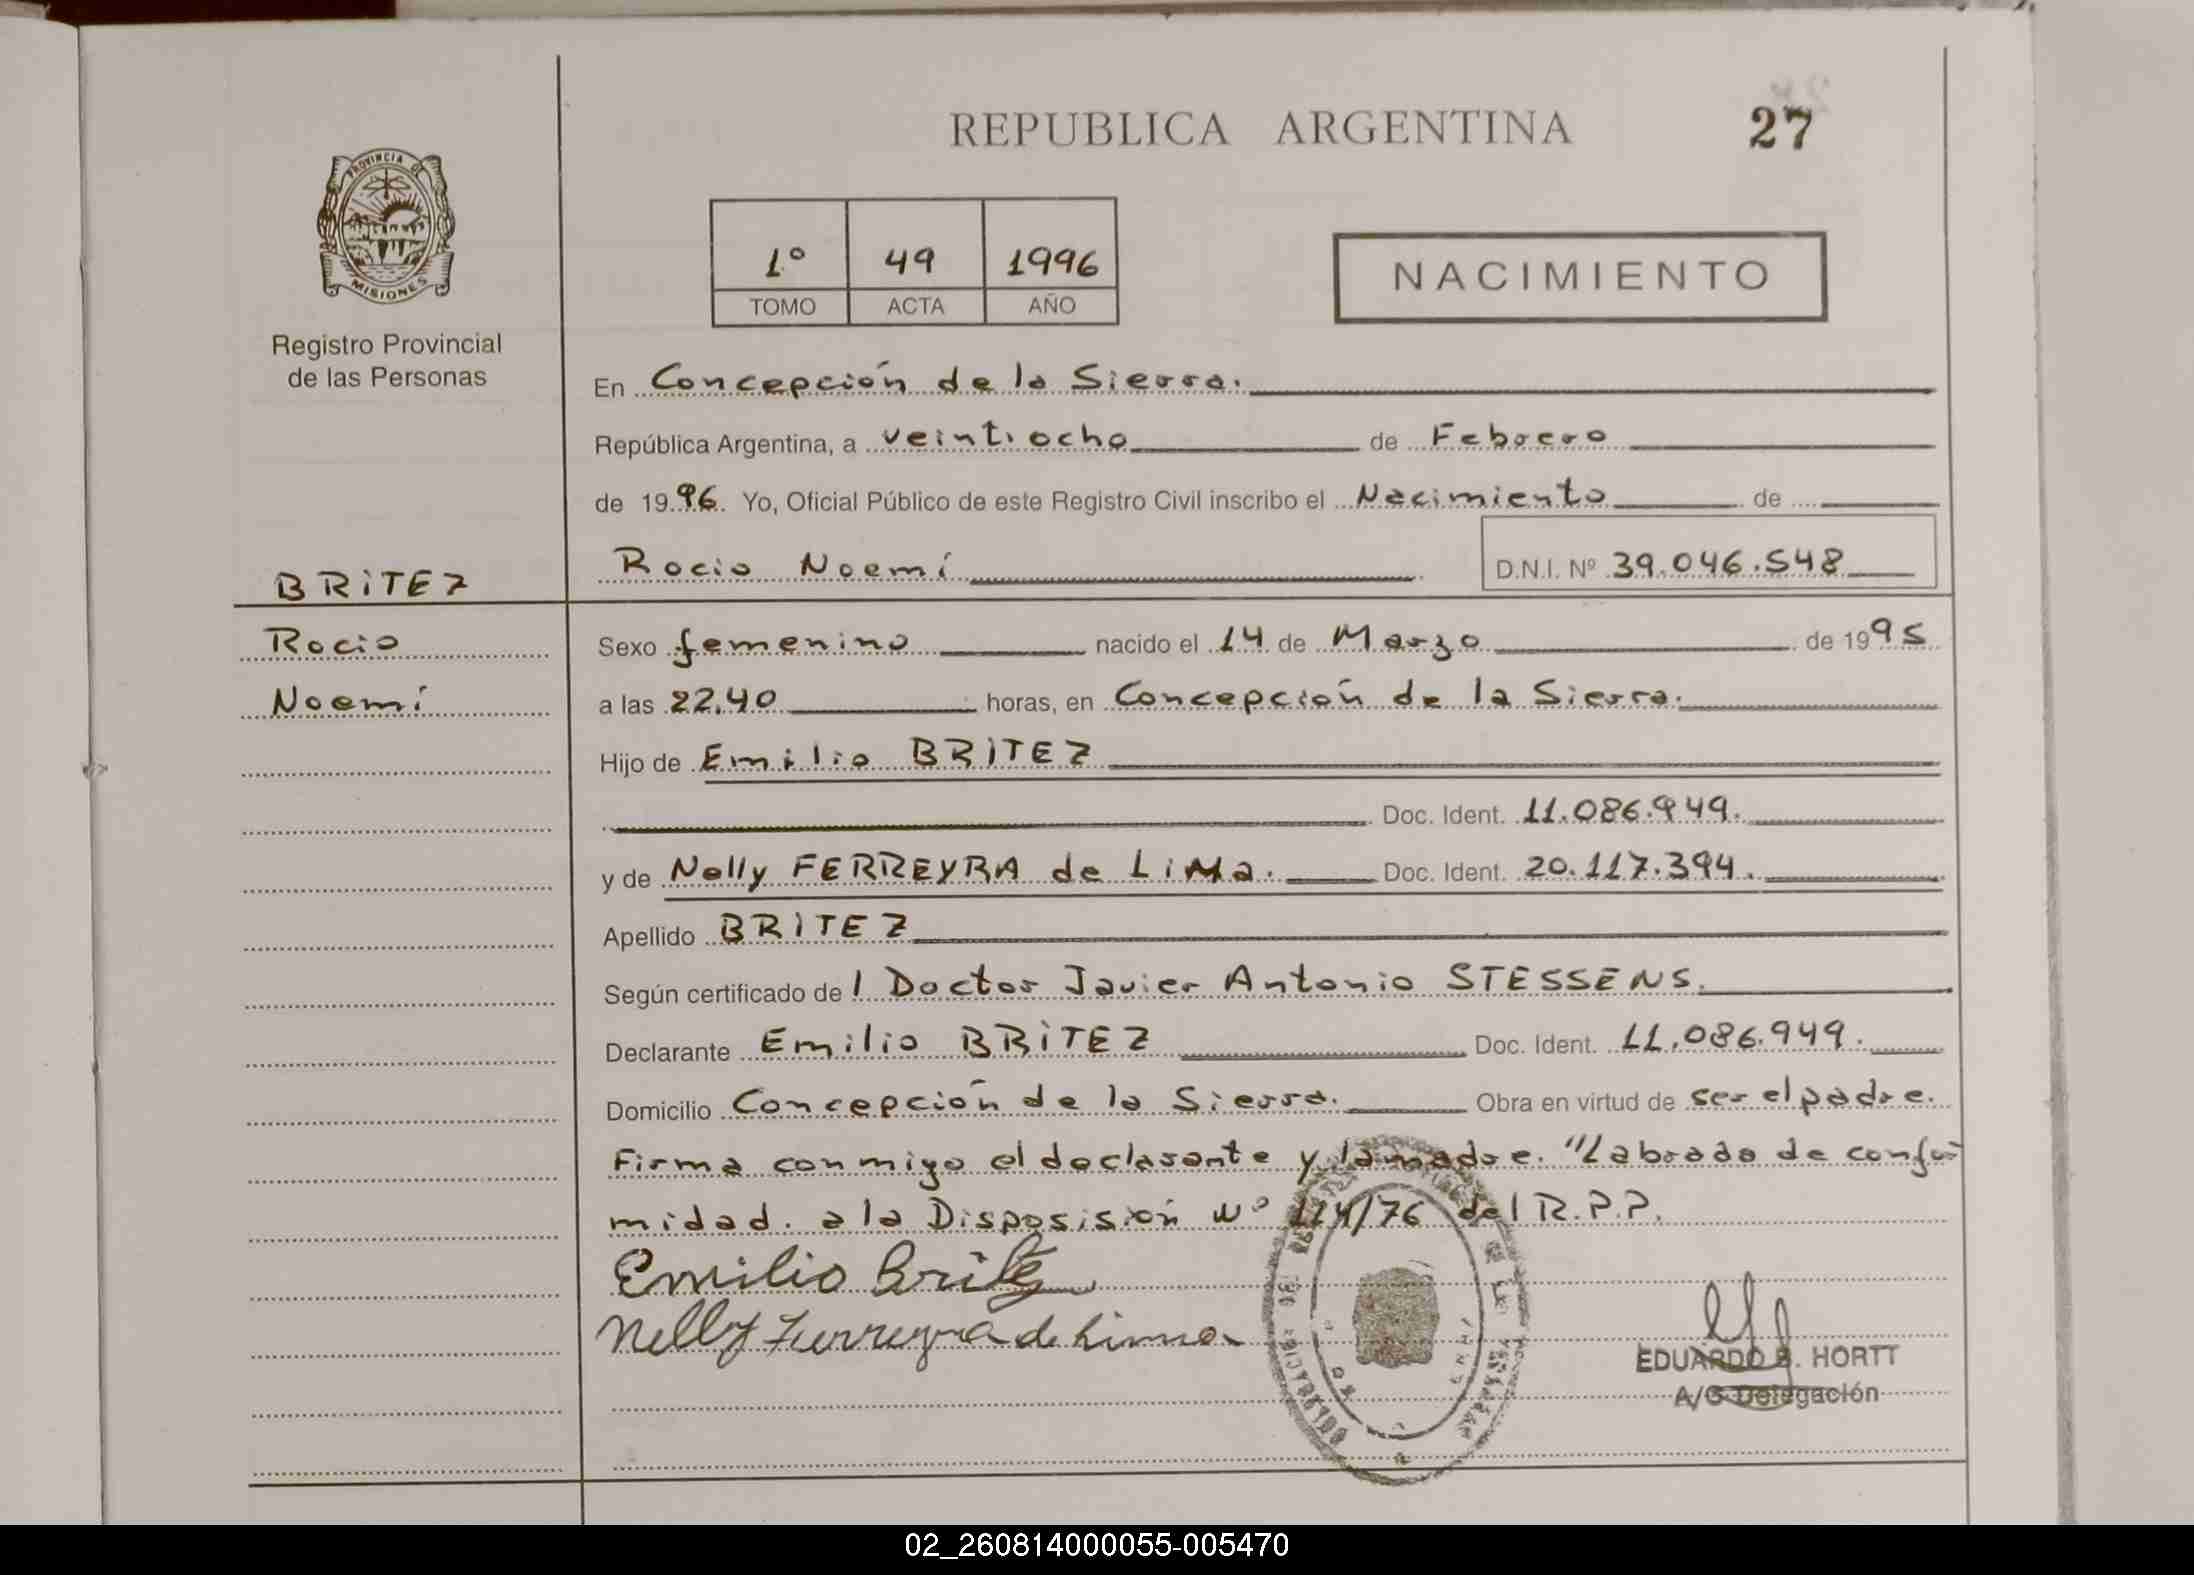 REPUBLICA ARGENTINA
27
PROVINCIA DE
MISIONES
Registro Provincial
de las Personas
1º 49 1996
TOMO ACTA AÑO
NACIMIENTO
En Concepción de la Sierra.
República Argentina, a veintiocho de Febrero
de 1996. Yo, Oficial Público de este Registro Civil inscribo el Nacimiento de
BRITEZ
Rocio Noemí D.N.I. Nº 39.046.548
Rocio
Noemí
Sexo femenino nacido el 14 de Marzo de 1995
a las 22.40 horas, en Concepción de la Sierra.
Hijo de Emilio BRITEZ
Doc. Ident. 11.086.949.
y de Nelly FERREYRA de LiMa. Doc. Ident. 20.117.394.
Apellido BRITEZ
Según certificado del Doctor Javier Antonio STESSENS.
Declarante Emilio BRITEZ Doc. Ident. 11.086.949.
Domicilio Concepción de la Sierra. Obra en virtud de ser el padre.
Firma conmigo el declarante y la madre. "Labrado de confor
midad. a la Disposisión Nº 114/76 del R.P.P.
Emilio Britez
Nelly Ferreyra de Lima
EDUARDO B. HORTT
A/C Delegación
02_260814000055-005470